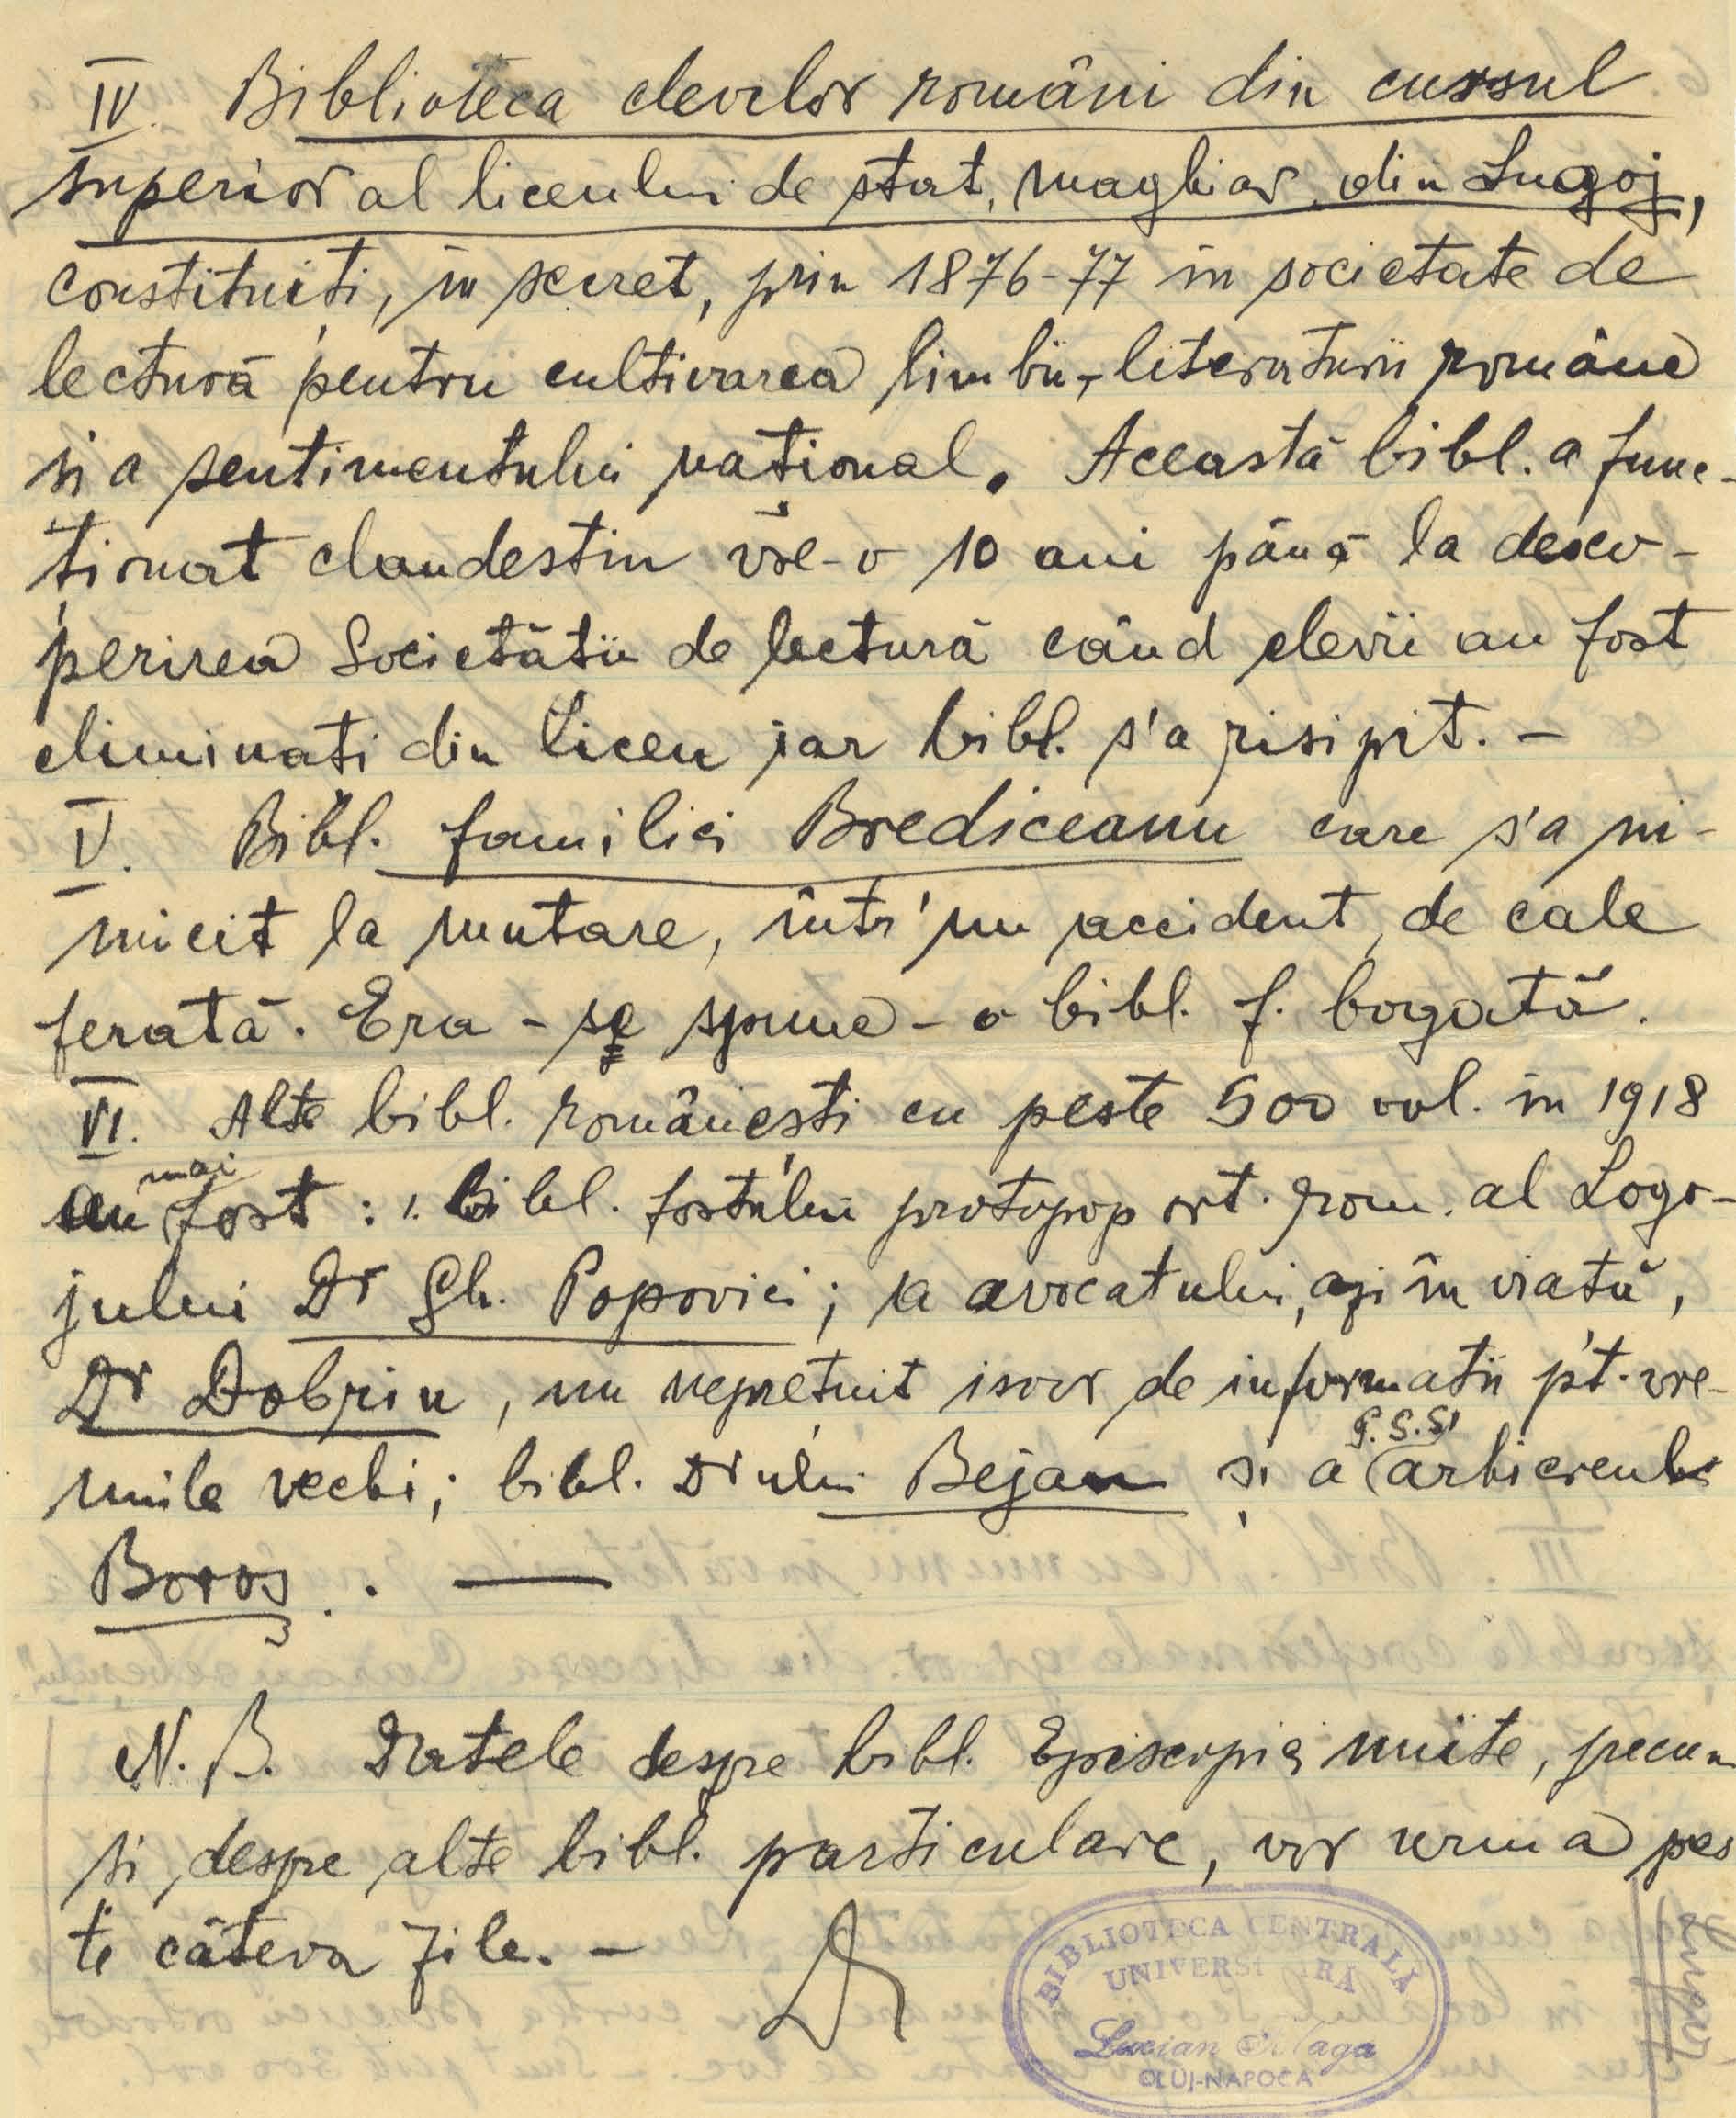 IV. Biblioteca elevilor români din cursul
superior al liceului de stat, maghiar, din Lugoj,
constituiți, în secret, prin 1876-77 în societate de
lectură pentru cultivarea limbii, literaturii române
și a sentimentului național. Această bibl. a func-
ționat clandestin vre-o 10 ani până la desco-
perirea Societății de lectură când elevii au fost
eliminați din liceu iar bibl. s'a risipit. —
V. Bibl. familiei Brediceanu care s'a ni-
micit la mutare, într'un accident de cale
ferată. Era - se spune - o bibl. f. bogată.
VI. Alte bibl. românești cu peste 500 vol. în 1918
au mai fost: 1. bibl. fostului protopop ort. rom. al Logo-
jului Dr Gh. Popovici; a avocatului, azi în viață,
Dr Dobrin, un neprețuit isvor de informații pt. vre-
mile vechi; bibl. Drului Bejan și a P.S.S. arhiereului
Boroș. —
N.B. Datele despre bibl. Episcopiei unite, precum
și despre alte bibl. particulare, vor urma pes
te câteva zile. —
BIBLIOTECA CENTRALĂ
UNIVERSITARĂ
Lucian Blaga
CLUJ-NAPOCA